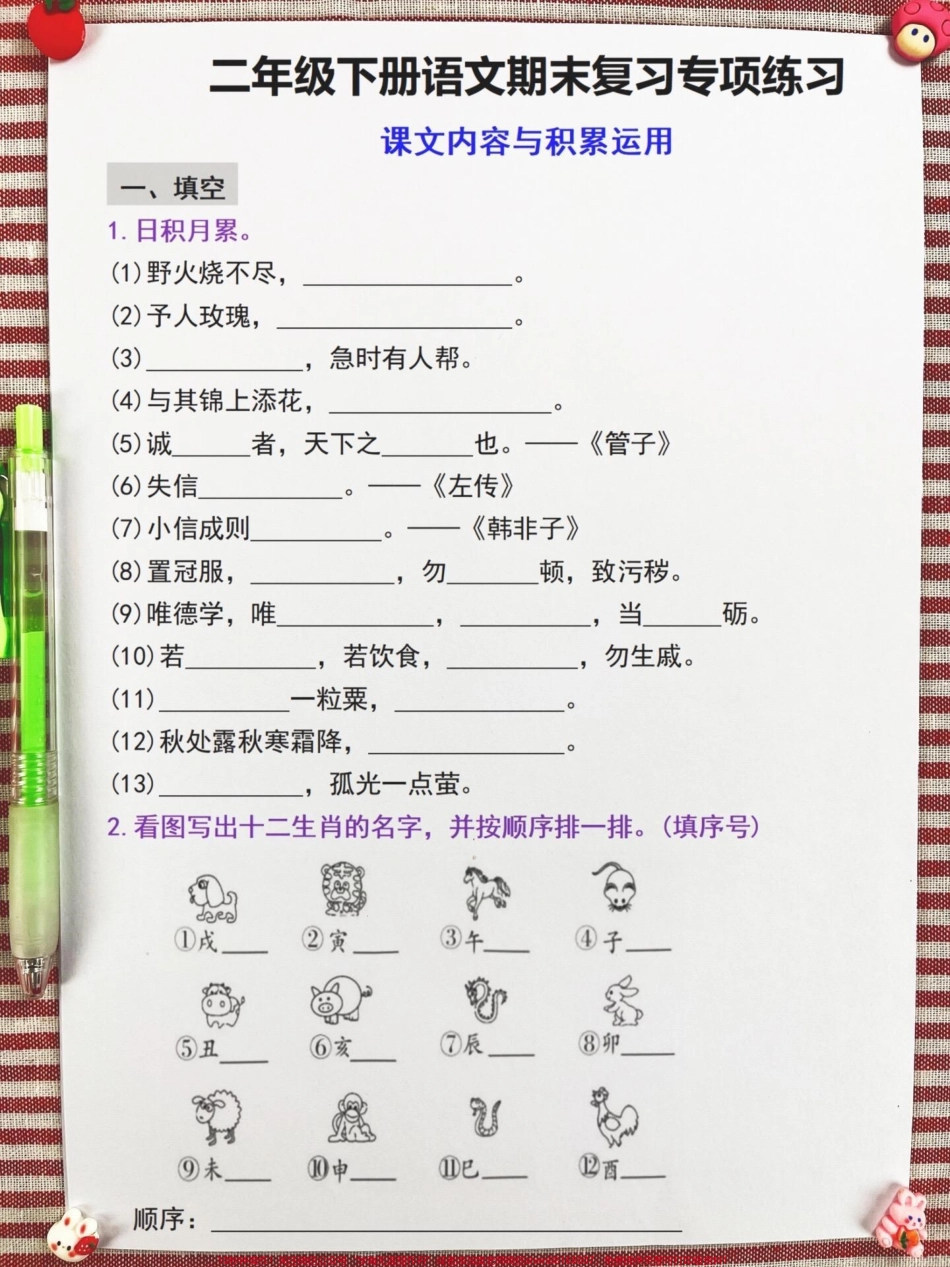 二年级下册语文期末复习专项练习
课文内容与积累运用
一、填空
1.日积月累。
(1)野火烧不尽，________________。
(2)予人玫瑰，__________________。
(3)____________，急时有人帮。
(4)与其锦上添花，_________________。
(5)诚______者，天下之_______也。——《管子》
(6)失信___________。——《左传》
(7)小信成则__________。——《韩非子》
(8)置冠服，___________，勿_______顿，致污秽。
(9)唯德学，唯____________，__________，当______砺。
(10)若__________，若饮食，__________，勿生戚。
(11)__________一粒粟，_____________。
(12)秋处露秋寒霜降，_______________。
(13)___________，孤光一点萤。
2.看图写出十二生肖的名字，并按顺序排一排。(填序号)
①戌____ ②寅____ ③午____ ④子____
⑤丑____ ⑥亥____ ⑦辰____ ⑧卯____
⑨未____ ⑩申____ ⑪巳____ ⑫酉____
顺序：____________________________________